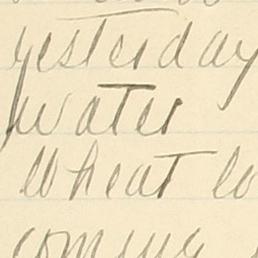 yesterday
water
Wheat lo
coming